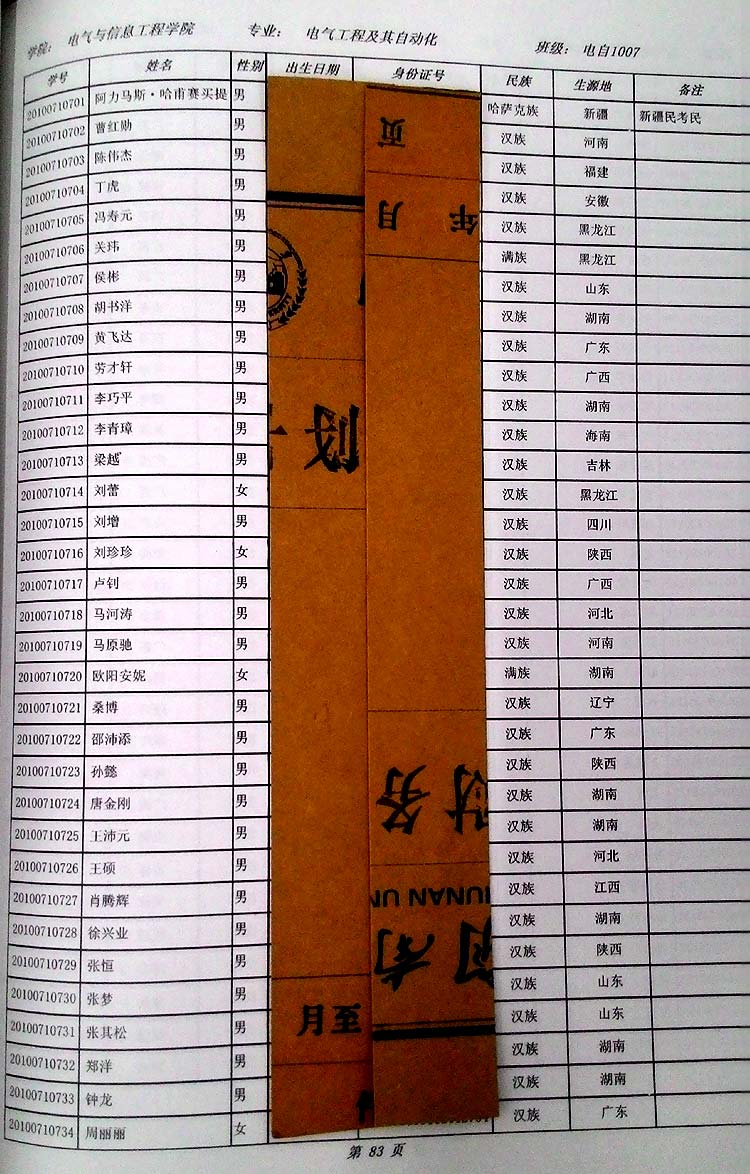 学院: 电气与信息工程学院 专业: 电气工程及其自动化 班级: 电自1007
学号 姓名 性别 出生日期 身份证号 民族 生源地 备注
20100710701 阿力马斯·哈甫赛买提 男 哈萨克族 新疆 新疆民考民
20100710702 曹红勋 男 汉族 河南
20100710703 陈伟杰 男 汉族 福建
20100710704 丁虎 男 汉族 安徽
20100710705 冯寿元 男 汉族 黑龙江
20100710706 关玮 男 满族 黑龙江
20100710707 侯彬 男 汉族 山东
20100710708 胡书洋 男 汉族 湖南
20100710709 黄飞达 男 汉族 广东
20100710710 劳才轩 男 汉族 广西
20100710711 李巧平 男 汉族 湖南
20100710712 李青璋 男 汉族 海南
20100710713 梁越 男 汉族 吉林
20100710714 刘蕾 女 汉族 黑龙江
20100710715 刘增 男 汉族 四川
20100710716 刘珍珍 女 汉族 陕西
20100710717 卢钊 男 汉族 广西
20100710718 马河涛 男 汉族 河北
20100710719 马原驰 男 汉族 河南
20100710720 欧阳安妮 女 满族 湖南
20100710721 桑博 男 汉族 辽宁
20100710722 邵沛添 男 汉族 广东
20100710723 孙懿 男 汉族 陕西
20100710724 唐金刚 男 汉族 湖南
20100710725 王沛元 男 汉族 湖南
20100710726 王硕 男 汉族 河北
20100710727 肖腾辉 男 汉族 江西
20100710728 徐兴业 男 汉族 湖南
20100710729 张恒 男 汉族 陕西
20100710730 张梦 男 汉族 山东
20100710731 张其松 男 汉族 山东
20100710732 郑洋 男 汉族 湖南
20100710733 钟龙 男 汉族 湖南
20100710734 周丽丽 女 汉族 广东
页
年 月
财务
HUNAN UN
湖南
月至
第 83 页